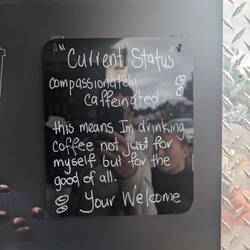 "Current Status"
compassionately
caffeinated
this means Im drinking
coffee not just for
myself but for the
good of all.
Your Welcome